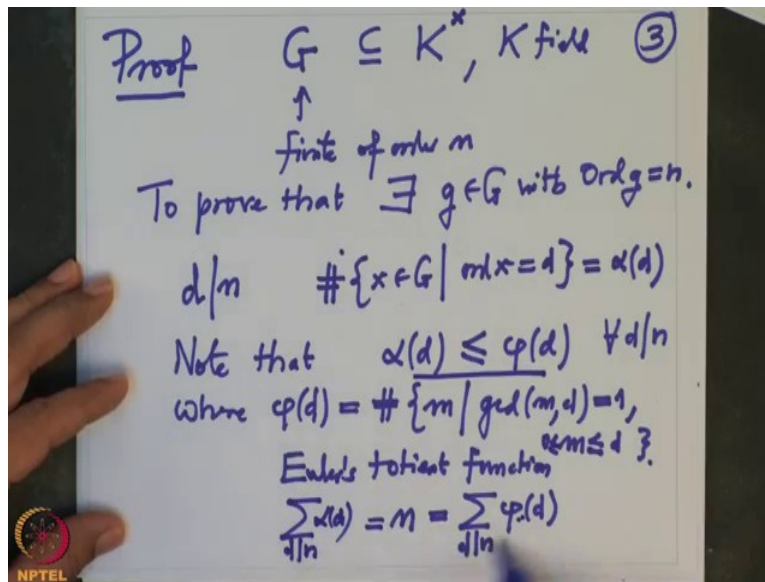 Proof G ⊆ K^×, K field ③
↑
finite of order n
To prove that ∃ g∈G with Ord g = n.
d|n #{x∈G | ord x = d} = α(d)
Note that α(d) ≤ φ(d) ∀ d|n
where φ(d) = #{m | gcd(m,d)=1,
≤m≤d}.
Euler's totient function
∑_{d|n} α(d) = n = ∑_{d|n} φ(d)
NPTEL